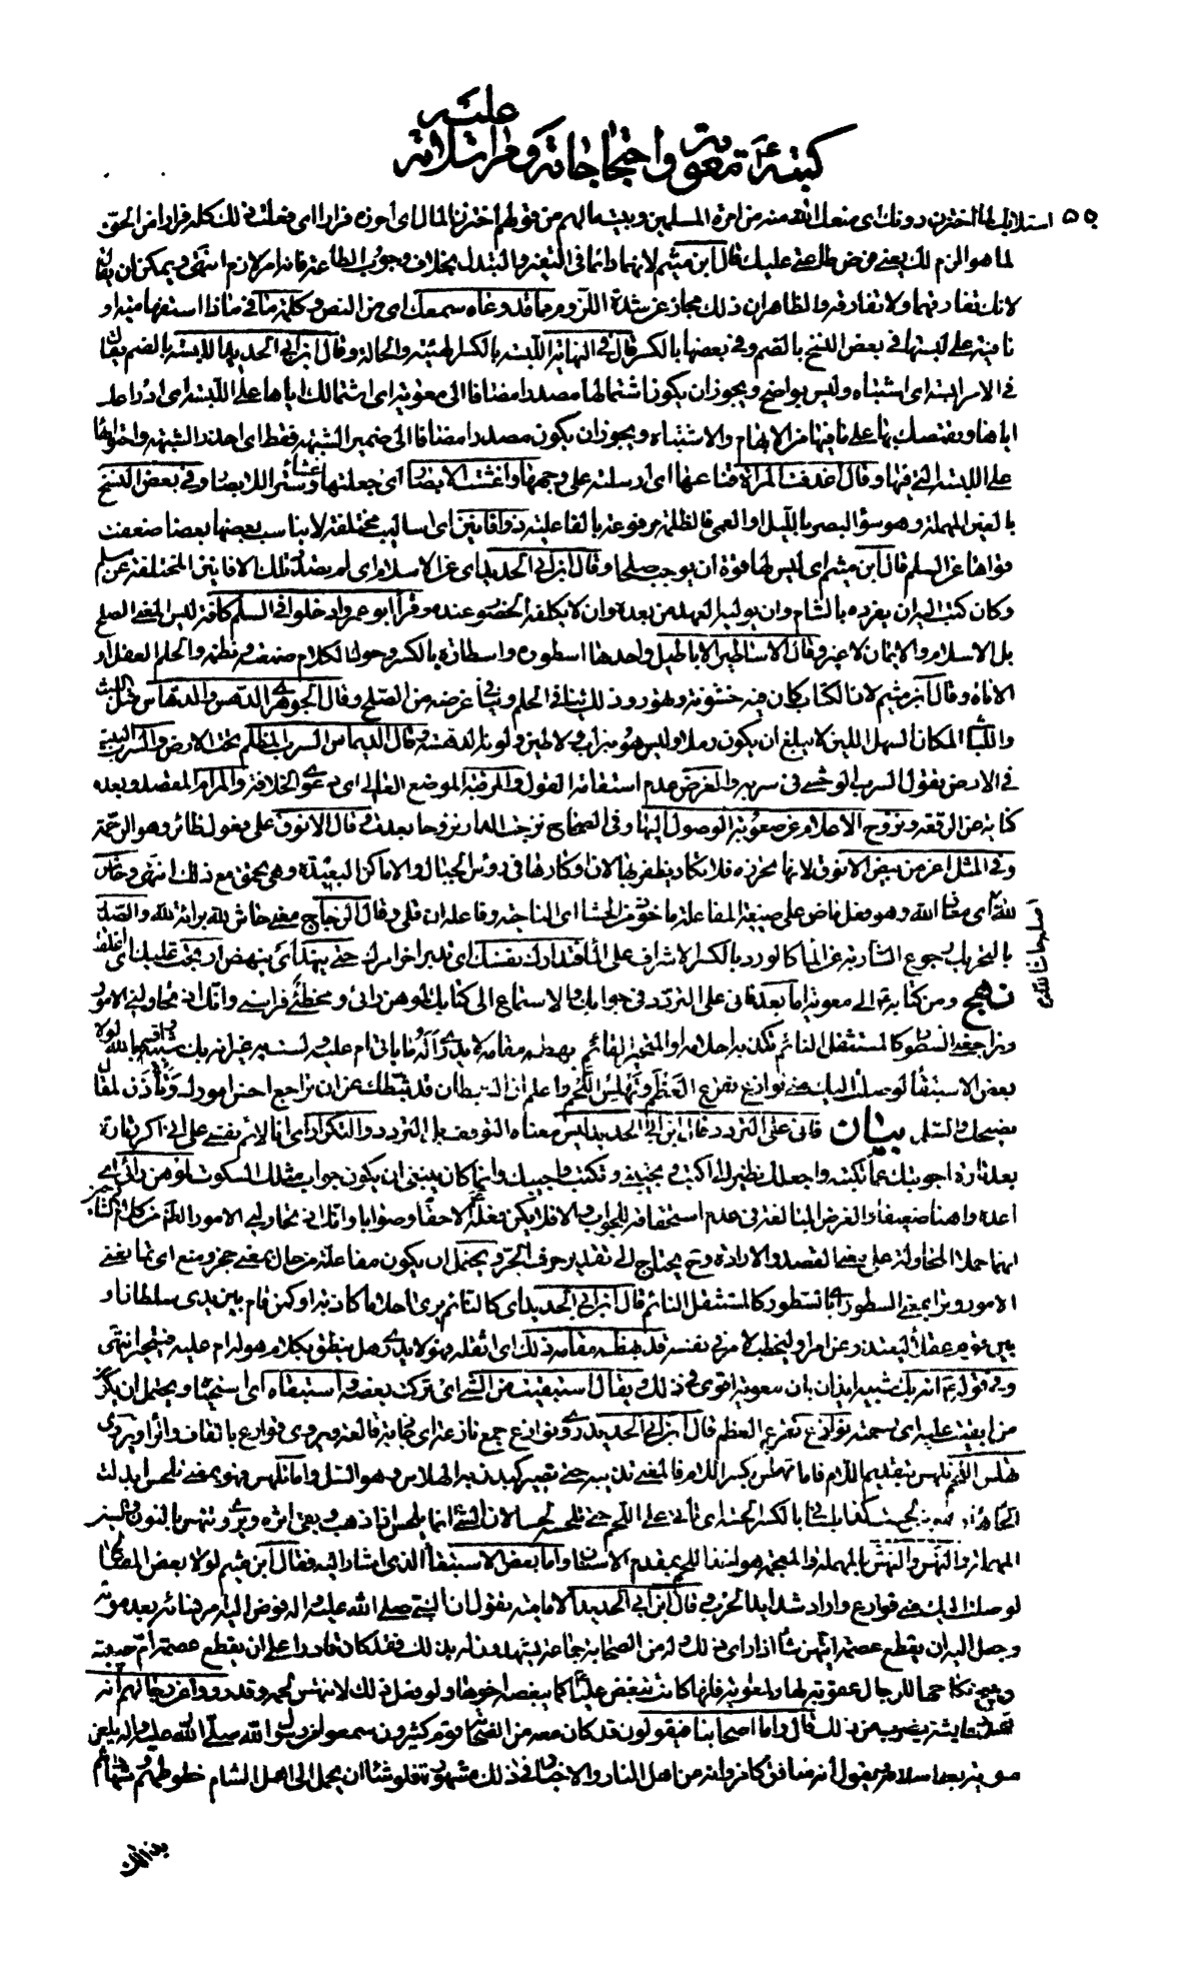 عليه
كتبه ع الى معوية واحتجاجاته ومراسلاته
٥٥٠ استلابك لما اختزن دونك اى منعك الله منه من امرة المسلمين وبيت مالهم من قولهم اختزن المال اى احرزه فرارا اى فعلت ذلك كله فرارا من الحق
لما هو الزم لك يعنى فرض طاعتى عليك قال ابن ميثم لانهما دائما فى التغير والتبدل بخلاف وجوب الطاعة فانه امر لازم انتهى ويمكن ان يقال
لانك تفارقهما ولا تفارقه والظاهر ان ذلك مجاز عن شدة اللزوم مما قد وعاه سمعك اى من النص وكلمة ما فى ماذا استفهامية او
نافية على لبستها فى بعض النسخ بالضم وفى بعضها بالكسر قال فى النهاية اللبسة بالكسر الهيئة والحالة وقال ابن ابى الحديد اللبسة بالضم يقال
فى الامر لبسة اى اشتباه وليس بواضح ويجوز ان يكون اشتمالها مصدرا مضافا الى معوية اى اشتمالك اياها على اللبسة اى ادراعك
اياها وتقمصك بها على ما فيها من الابهام والاشتباه ويجوز ان يكون مصدرا مضافا الى ضمير الشبهة فقط اى احذر الشبهة واحتوائها
على اللبسة التى فيها وقال اغدفت المراة قناعها اى ارسلته على وجهها واغشت الابصار اى جعلتها غشاء وسترا للابصار وفى بعض النسخ
بالعين المهملة وهو سوء البصر بالليل او العمى فالظلمة مرفوعة بالفاعلية ذو افانين اى اساليب مختلفة لا يناسب بعضها بعضا ضعفت
قواها عن السلم قال ابن ميثم اى ليس لها قوة ان يوجب صلحا وقال ابن ابى الحديد اى عن الاسلام اى لم تصدر تلك الافانين المختلفة عن مسلم
وكان كتب اليه ان يفرده بالشام وان يوليه العهد من بعده وان لا يكلفه الحضور عنده وقرأ ابو عمرو ادخلوا فى السلم كافة ليس المعنى الصلح
بل الاسلام والايمان لا غير وقال الاساطير الاباطيل واحدها اسطورة واسطارة بالكسر وحوك الكلام صنعته ونظمه والحلم العقل او
الاناة وقال ابن ميثم لان الكتاب كان فيه خشونة وتهور وذلك ينافى الحلم وينافى غرضه من الصلح وقال الجوهرى الدهس والدهاس مثل اللبث
واللباث المكان السهل اللين لا يبلغ ان يكون رملا وليس هو بتراب ولا طين ولونه الدهسة وقال الديماس السرب المظلم تحت الارض والسرب البيت
فى الارض يقول السرب الوحشى فى سربه والغرض عدم استقامة القول والمرقبة الموضع العالى اى دعوى الخلافة والمرام المقصد وبعده
كناية عن الرفعة ونزوح الاعلام عن صعوبة الوصول اليها وفى الصحاح نزحت الدار نزوحا بعدت وقال الانوق على فعول طائر وهو الرخمة
وفى المثل اعز من بيض الانوق لانها تحرزه فلا يكاد يظفر بها لان اوكارها فى رؤس الجبال والاماكن البعيدة وهى تحمق مع ذلك انتهى وحاش
لله اى معاذ الله وهو فعل ماض على صيغة المفاعلة ماخوذ من الحشا اى الناحية وفاعله ان تلى وقال الزجاج معنى حاش لله براءة لله والصدر
بالتحريك رجوع الشاربة عن الماء كالورد بالكسر الاشراف على الماء فتدارك نفسك اى تدبر اخر امرك حتى ينهد اى ينهض ارتجت عليك اى اغلقت
نهج ومن كتاب له ع الى معوية اما بعد فانى على التردد فى جوابك والاستماع الى كتابك لموهن رائى ومخطئ فراستى وانك اذ تحاولنى الامور
وتراجعنى السطور كالمستثقل النائم تكذبه احلامه او المتحير القائم يبهظه مقامه لا يدرى اله ما ياتى ام عليه ولست به غير انه بك شبيه واقسم بالله لولا
بعض الاستبقاء لوصلت اليك منى نوازع تقرع العظم وتهلس اللحم واعلم ان الشيطان قد ثبطك عن ان تراجع احسن امورك وتأذن لمقال
نصيحك والسلام بيان فانى على التردد قال ابن ابى الحديد ليس معناه التوقف بل التردد والتكرار اى انا لائم نفسى على انى اكرر تارة
بعد تارة اجوبتك عما تكتبه واجعلك نظيرا لى اكتب وتجيبنى وتكتب واجيبك وانما كان ينبغى ان يكون جواب مثلك السكوت لموهن رائى اى
اعده واهنا ضعيفا والغرض المبالغة فى عدم استحقاقه للجواب والا فلا يكن فعله الا حقا وصوابا وانك اذ تحاولنى الامور الظاهر من كلام الشارحين
انهما حملا المحاولة على معنى القصد والارادة وح يحتاج الى تقدير حرف الجر ويحتمل ان يكون مفاعلة من حال بمعنى حجز ومنع اى تمانعنى
الامور وتراجعنى السطور اى بالسطور كالمستثقل النائم قال ابن ابى الحديد اى كالنائم يرى احلاما كاذبة او كمن قام بين يدى سلطان او
بين قوم عقلاء ليعتذر عن امر او ليخطب لامر فى نفسه قد بهظه مقامه ذلك اى اثقله فهو لا يدرى هل ينطق بكلام هو له ام عليه فيتحير انتهى
وفى قوله ع انه بك شبيه ايذان بان معوية اقوى فى ذلك ويقال استبقيت من الشئ اى تركت بعضه واستبقاه اى استحياه ويحتمل ان يكون
من ابقيت عليه اى رحمته نوازع تقرع العظم قال ابن ابى الحديد روى نوازع جمع نازعة اى جاذبة قالعة ويروى قوارع بالقاف والراء ويروى
تهلس اللحم وتلهس بتقديم اللام فاما تهلس بكسر اللام فالمعنى تذيبه حتى تصير كبدن به الهلاس وهو السل واما تلهس فهو بمعنى تلحس ابدلت
الحاء هاء وهو من لحست كذا بلسانى بالكسر الحسه اى تأتى على اللحم حتى تلحسه لحسا لان الشئ انما يلحس اذا ذهب وبقى اثره ويروى وتنهس بالنون والسين
المهملة والنهس والنهش بالمهملة والمعجمة هو اخذ اللحم بمقدم الاسنان واما بعض الاستبقاء الذى اشار اليه فقال ابن ميثم لولا بعض المصالح
لوصلت اليك منى قوارع واراد شدايد الحرب وقال ابن ابى الحديد الامامية تقول ان النبى صلى الله عليه واله فوض اليه امر نسائه بعد موته
وجعل اليه ان يقطع عصمة ايتهن شاء اذا راى ذلك وله من الصحابة جماعة يشهدون له بذلك فقد كان قادرا على ان يقطع عصمة ام حبيبة
ويبيح نكاحها للرجال عقوبة لها ولمعوية فانها كانت تبغض عليا كما يبغضه اخوها ولو فعل ذلك لانتهس لحمه وقد رووا عن رجالهم انه
تهدد عايشة بضرب من ذلك قال واما اصحابنا فيقولون قد كان معه من الصحابة قوم كثيرون سمعوا من رسول الله صلى الله عليه واله يلعن
معوية بعد اسلامه ويقول انه منافق كافر وانه من اهل النار والاخبار فى ذلك مشهورة فلو شاء ان يحمل الى اهل الشام خطوطهم وشهاداتهم
بذلك